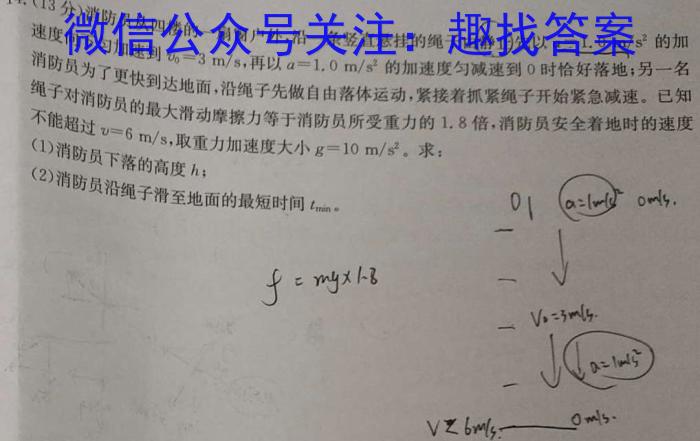 微信公众号关注：趣找答案
14.(13分)消防员从四楼的一扇窗户外,沿一条竖直悬挂的绳子 m/s² 的加
速度 匀加速到 v₀=3 m/s,再以 a=1.0 m/s² 的加速度匀减速到 0 时恰好落地;另一名
消防员为了更快到达地面,沿绳子先做自由落体运动,紧接着抓紧绳子开始紧急减速。已知
绳子对消防员的最大滑动摩擦力等于消防员所受重力的 1.8 倍,消防员安全着地时的速度
不能超过 v=6 m/s,取重力加速度大小 g=10 m/s²。求:
(1)消防员下落的高度 h;
(2)消防员沿绳子滑至地面的最短时间 tmin。
a=1m/s² 0m/s.
f = mg×1.8
V₀=3m/s.
a=1m/s²
0m/s.
6m/s.